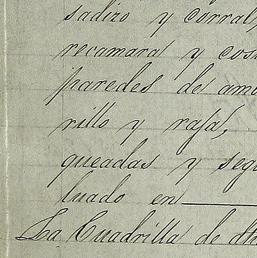 sadizo y corral,
recamara y cos
paredes de amo
rillo y rafa,
queadas y segu
luado en
La Cuadrilla de